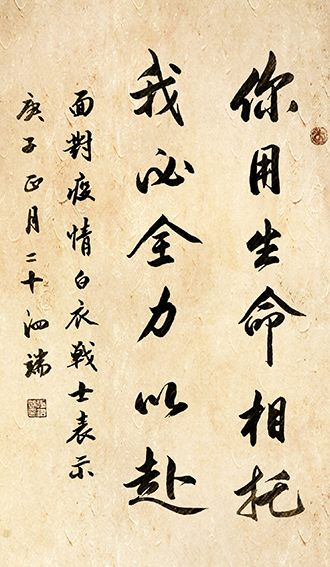 你用生命相托
我必全力以赴
面對疫情白衣戰士表示
庚子正月二十泗瑞